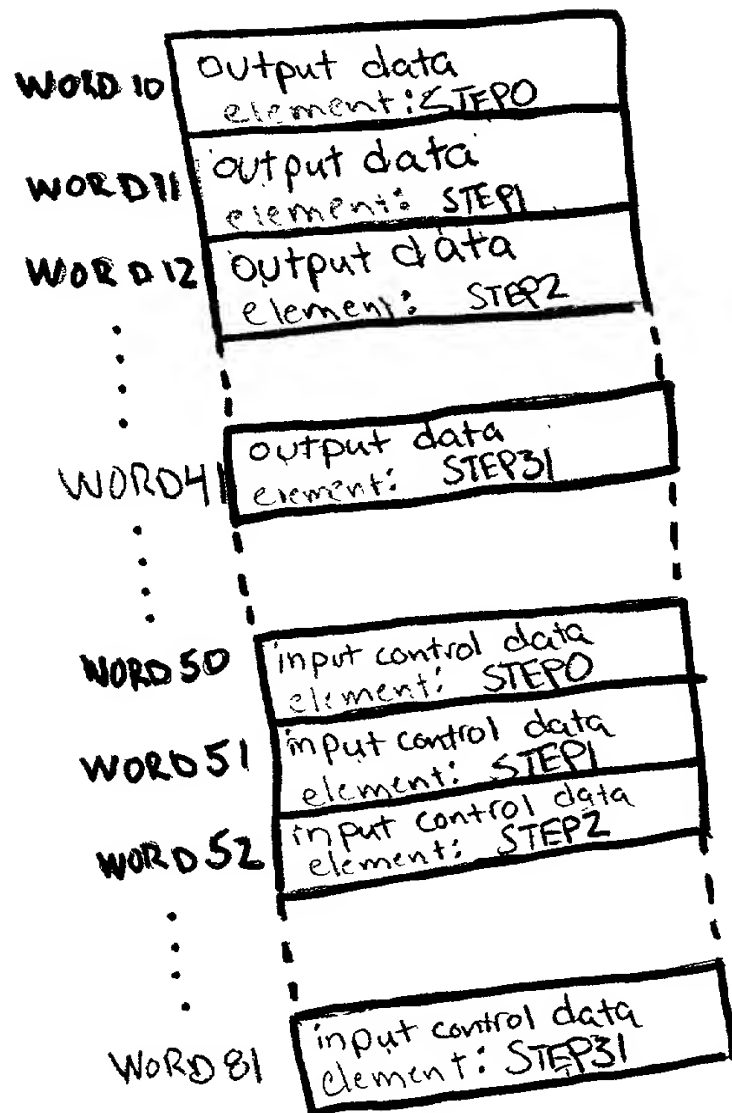 WORD 10
output data
element: STEP0
WORD 11
output data
element: STEP1
WORD 12
output data
element: STEP2
WORD 41
output data
element: STEP31
WORD 50
input control data
element: STEP0
WORD 51
input control data
element: STEP1
WORD 52
input control data
element: STEP2
WORD 81
input control data
element: STEP31